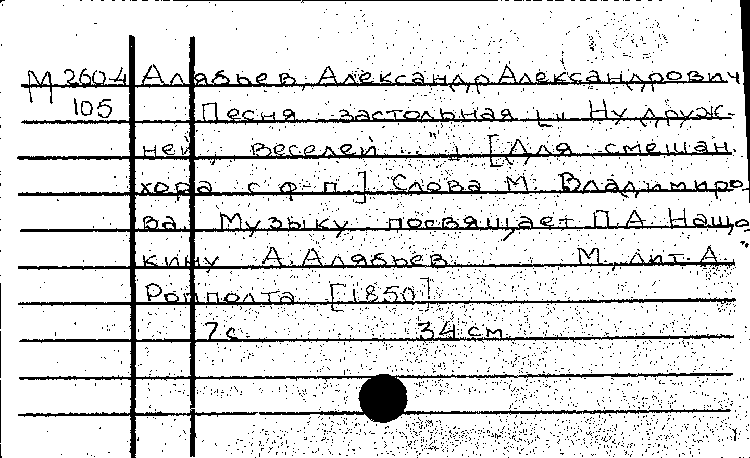 М 260-4 Алябьев, Александр Александрович
105 Песня застольная ["Ну друж-
ней, веселей ..."] [Для смешан.
хора с ф-п.] Слова М. Владимиро-
ва. Музыку посвящает П.А. Наще-
кину А. Алябьев. М., лит. А.
Роппольта [1850]
7 с. 34 см